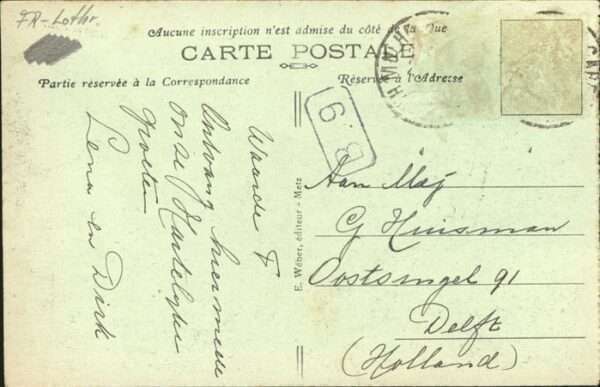 FR-Lothr.
Aucune inscription n'est admise du côté de la Vue
CARTE POSTALE
Partie réservée à la Correspondance
Réservé à l'Adresse
B. 9
E. Wéber, éditeur - Metz
Waarde F
Ontvang hiermede
onze Hartelyke
groeten
Lena en Dirk
Aan Mej
G Huisman
Oostsingel 91
Delft
(Holland)